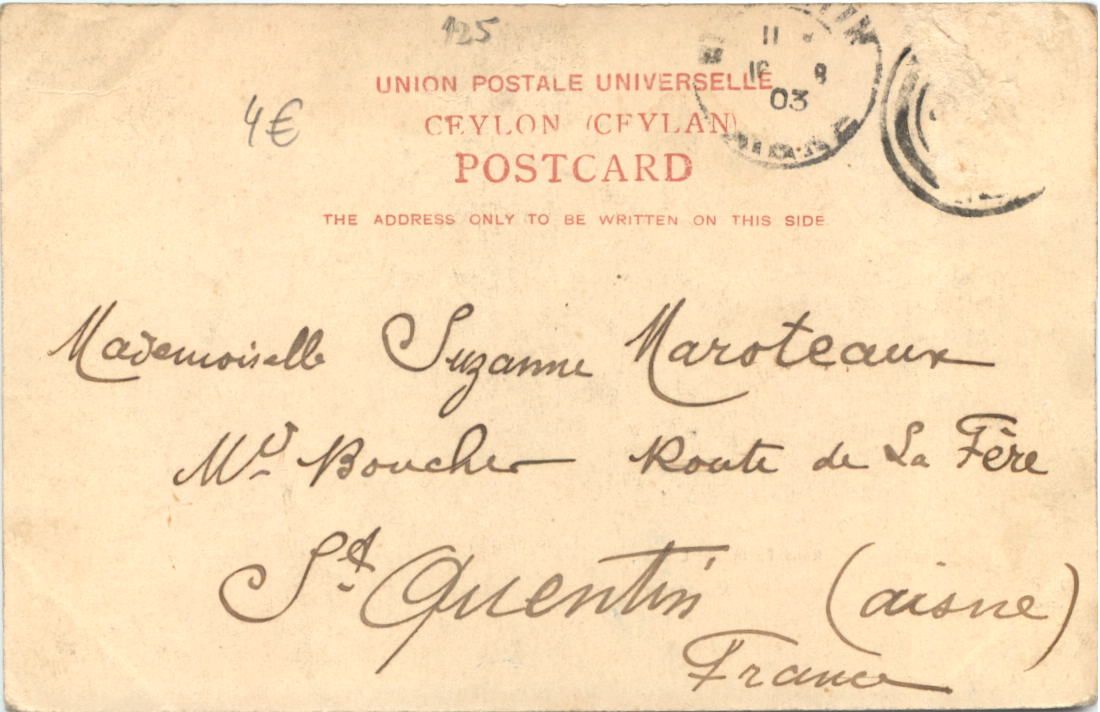 125
4€
UNION POSTALE UNIVERSELLE
CEYLON (CEYLAN)
POSTCARD
THE ADDRESS ONLY TO BE WRITTEN ON THIS SIDE
11
16 8
03
AISNE
Mademoiselle Suzanne Maroteaux
Md Boucher Route de La Fère
St Quentin (aisne)
France